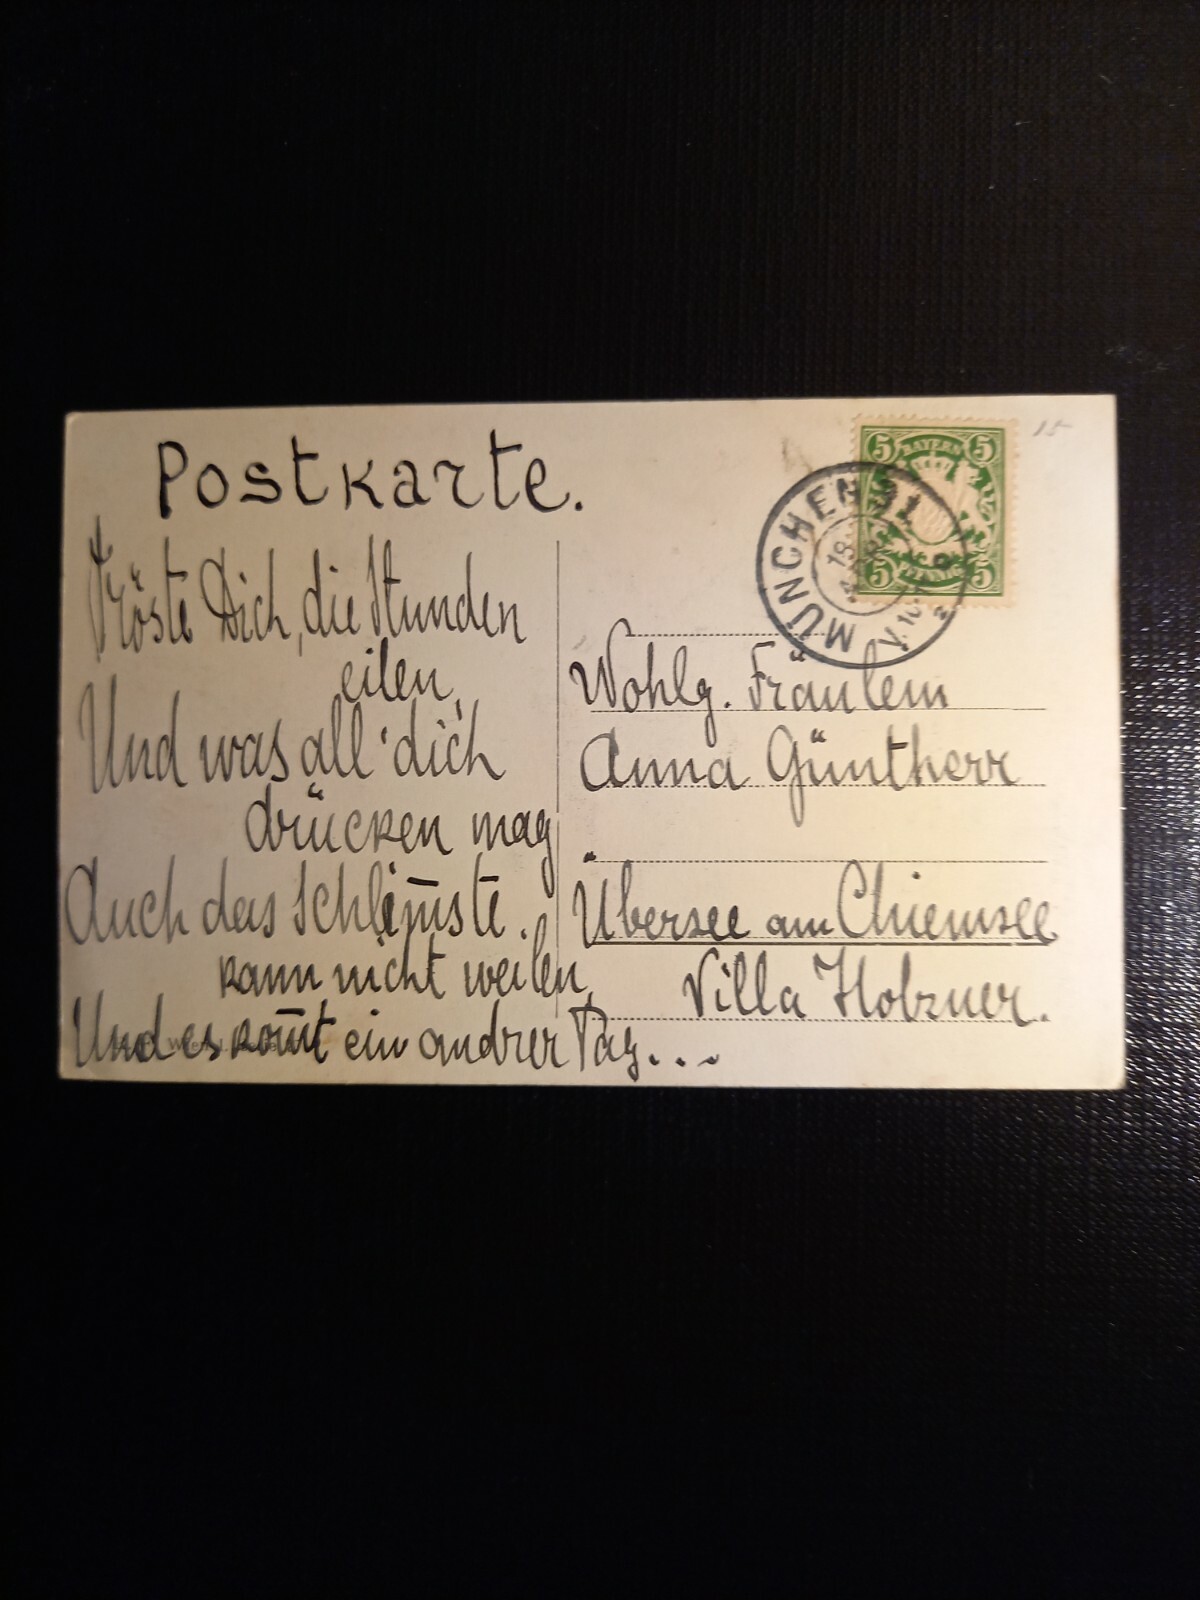 Postkarte.
Tröste Dich, die Stunden
eilen,
Und was all' dich
drücken mag
Auch das Schlim̅ste.
kann nicht weilen,
Und es kom̅t ein andrer Tag...
15
5 BAYERN 5
5 PFENNIG 5
MÜNCHEN 31
Wohlg. Fräulein
Anna Güntherr
Übersee am Chiemsee
Villa Holzner.